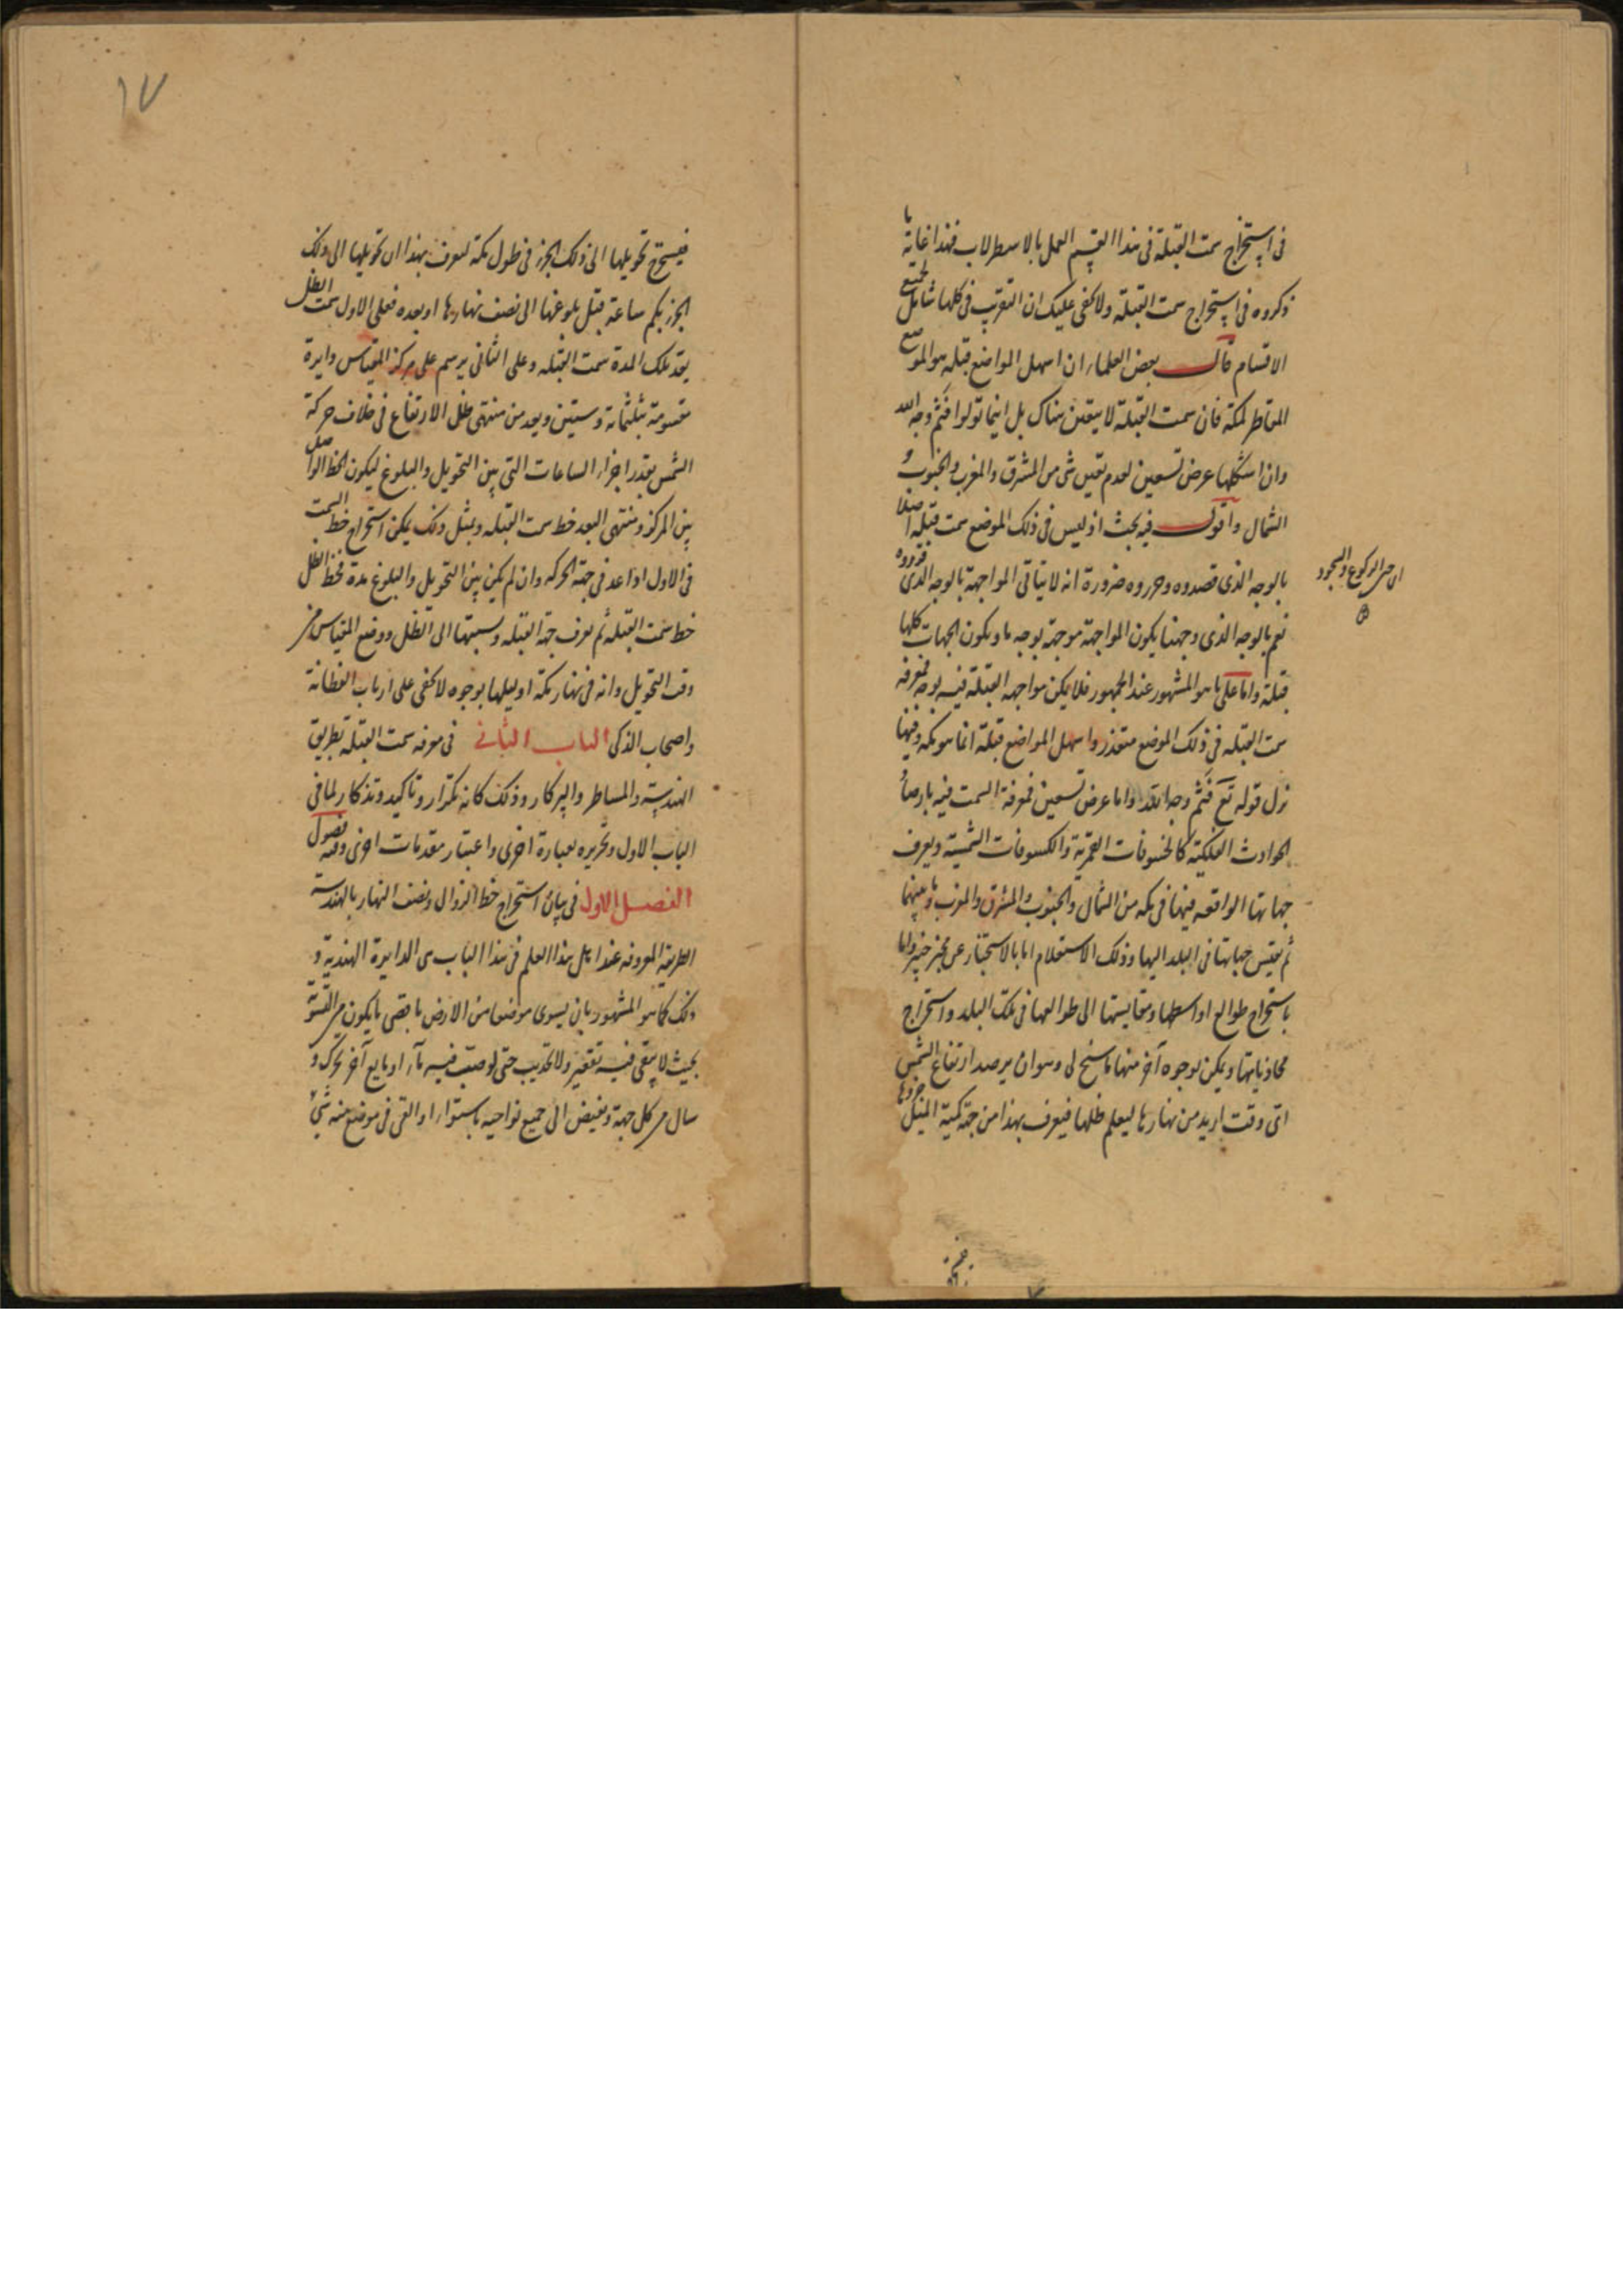 في استخراج سمت القبلة في هذا القسم العمل بالاسطرلاب فهذا غاية ما
ذكروه في استخراج سمت القبلة ولا يخفى عليك ان التقريب في كلها شامل لجميع
الاقسام قال بعض العلماء ان اسهل المواضع قبلة هو الموضع
المقاطر لمكة فان سمت القبلة لا يتعين هناك بل اينما تولوا فثم وجه الله
وان اشكلها عرض تسعين لعدم تعين شي من المشرق والمغرب والجنوب و
الشمال واقول فيه بحث اذ ليس في ذلك الموضع سمت قبلة اصلا
بالوجه الذي قصدوه وحرروه ضرورة انه لا يتاتى المواجهة بالوجه الذي قرروه
نعم بالوجه الذي وجهنا يكون المواجهة موجهة بوجه ما ويكون الجهات كلها
قبلة واما على ما هو المشهور عند الجمهور فلا يمكن مواجهة القبلة فيه بوجه فمعرفة
سمت القبلة في ذلك الموضع متعذر واسهل المواضع قبلة انما هو مكة وفيها
نزل قوله تع فثم وجه الله واما عرض تسعين فمعرفة السمت فيه بارصاد
الحوادث الفلكية كالخسوفات القمرية والكسوفات الشمسية ويعرف
جهاتها الواقعة فيها في مكة من الشمال والجنوب والمشرق والمغرب وما بينهما
ثم يقيس جهاتها في البلد اليها وذلك الاستعلام اما بالاستخبار عن مخبر خبير واما
باستخراج طوالع اواسطها ومقايستها الى طوالعها في تلك البلد واستخراج
محاذياتها ويمكن بوجوه آخر منها ما سنح لي وهو ان يرصد ارتفاع الشمس
اتى وقت اريد من نهارها ليعلم ظلها فيعرف بهذا من جهة كمية الميل جزوها
الركوع والسجود
١٧
فيستخرج تحويلها الى ذلك الجزء في طول مكة ليعرف بهذا ان تحويلها الى ذلك
الجزء بكم ساعة قبل بلوغها الى نصف نهارها او بعده فعلى الاول سمت الظل
بعد تلك المدة سمت القبلة وعلى الثاني يرسم على مركز المقياس دايرة
مقسومة بثلثمائة وستين ويعد من منتهى ظل الارتفاع في خلاف حركة
الشمس بقدر اجزاء الساعات التي بين التحويل والبلوغ ليكون الخط الواصل
بين المركز ومنتهى البعد خط سمت القبلة وبمثل ذلك يمكن استخراج خط السمت
في الاول اذا عد في جهة الحركة وان لم يكن بين التحويل والبلوغ مدة فخط الظل
خط سمت القبلة ثم يعرف جهة القبلة ونسبتها الى الظل ووضع المقياس من
وقت التحويل وانه في نهار مكة او ليلها بوجوه لا يخفى على ارباب الفطانة
واصحاب الذكى الباب الثاني في معرفة سمت القبلة بطريق
الهندسة والمساطر والبركار وذلك كانه تكرار وتاكيد وتذكار لما في
الباب الاول وتحريره بعبارة اخرى واعتبار مقدمات اخرى وفيه فصول
الفصل الاول في بيان استخراج خط الزوال ونصف النهار بالهندسة
الطريقة المعروفة عند اهل هذا العلم في هذا الباب هي الدايرة الهندية و
ذلك كما هو المشهور بان يسوى موضعا من الارض باقصى ما يكون من التسوية
بحيث لا يبقى فيه تقعير ولا تحديب حتى لو صب فيه ماء او مايع آخر تحرك و
سال من كل جهة ويفيض الى جميع نواحيه باستواء او القى في موضع منه شيء